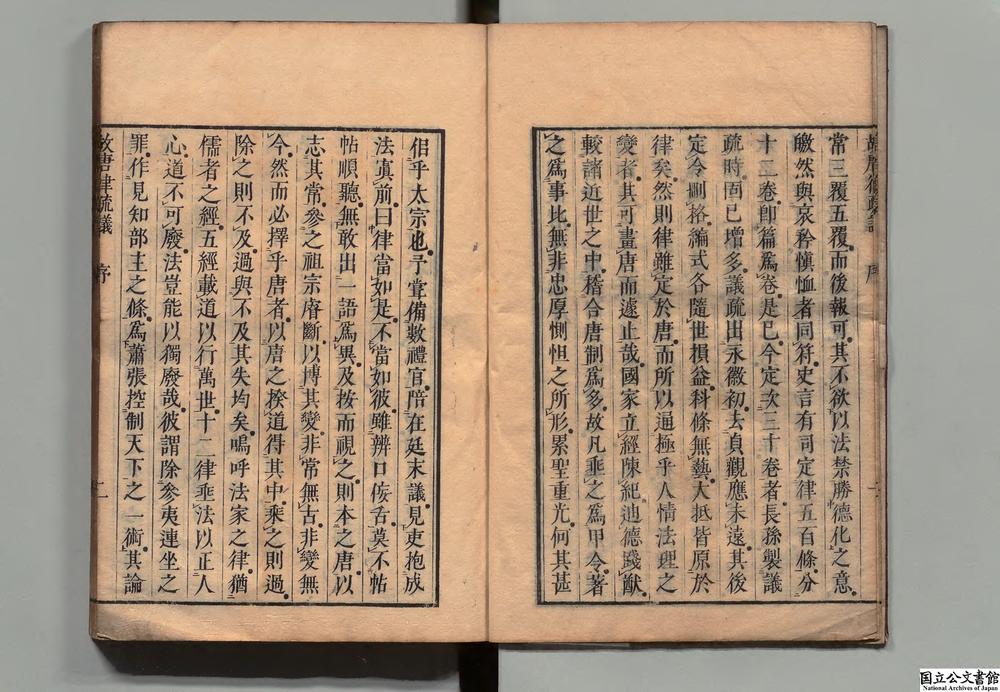 常三覆五覆而後報可其不欲以法禁勝德化之意
皦然與哀矜愼恤者同符史言有司定律五百條分
十二卷卽篇爲卷是已今定次三十卷者長孫製議
疏時固已增多議疏出永徽初去貞觀應未遠其後
定令刪格編式各隨世損益科條無藝大抵皆原於
律矣然則律雖定於唐而所以通極乎人情法理之
變者其可畫唐而遽止哉國家立經陳紀迪德踐猷
較諸近世之中稽合唐制爲多故凡垂之爲甲令著
之爲事比無非忠厚惻怛之所形累聖重光何其甚
佀乎太宗也予甞備數禮官陪在廷末議見吏抱成
法寘前曰律當如是不當如彼雖辨口佞舌莫不帖
帖順聽無敢出一語爲異及按而視之則本之唐以
志其常參之祖宗睿斷以博其變非常無古非變無
今然而必擇乎唐者以唐之揆道得其中乘之則過
除之則不及過與不及其失均矣嗚呼法家之律猶
儒者之經五經載道以行萬世十二律垂法以正人
心道不可廢法豈能以獨廢哉彼謂除參夷連坐之
罪作見知部主之條爲蕭張控制天下之一術其論
故唐律疏議 序 二
国立公文書館
National Archives of Japan